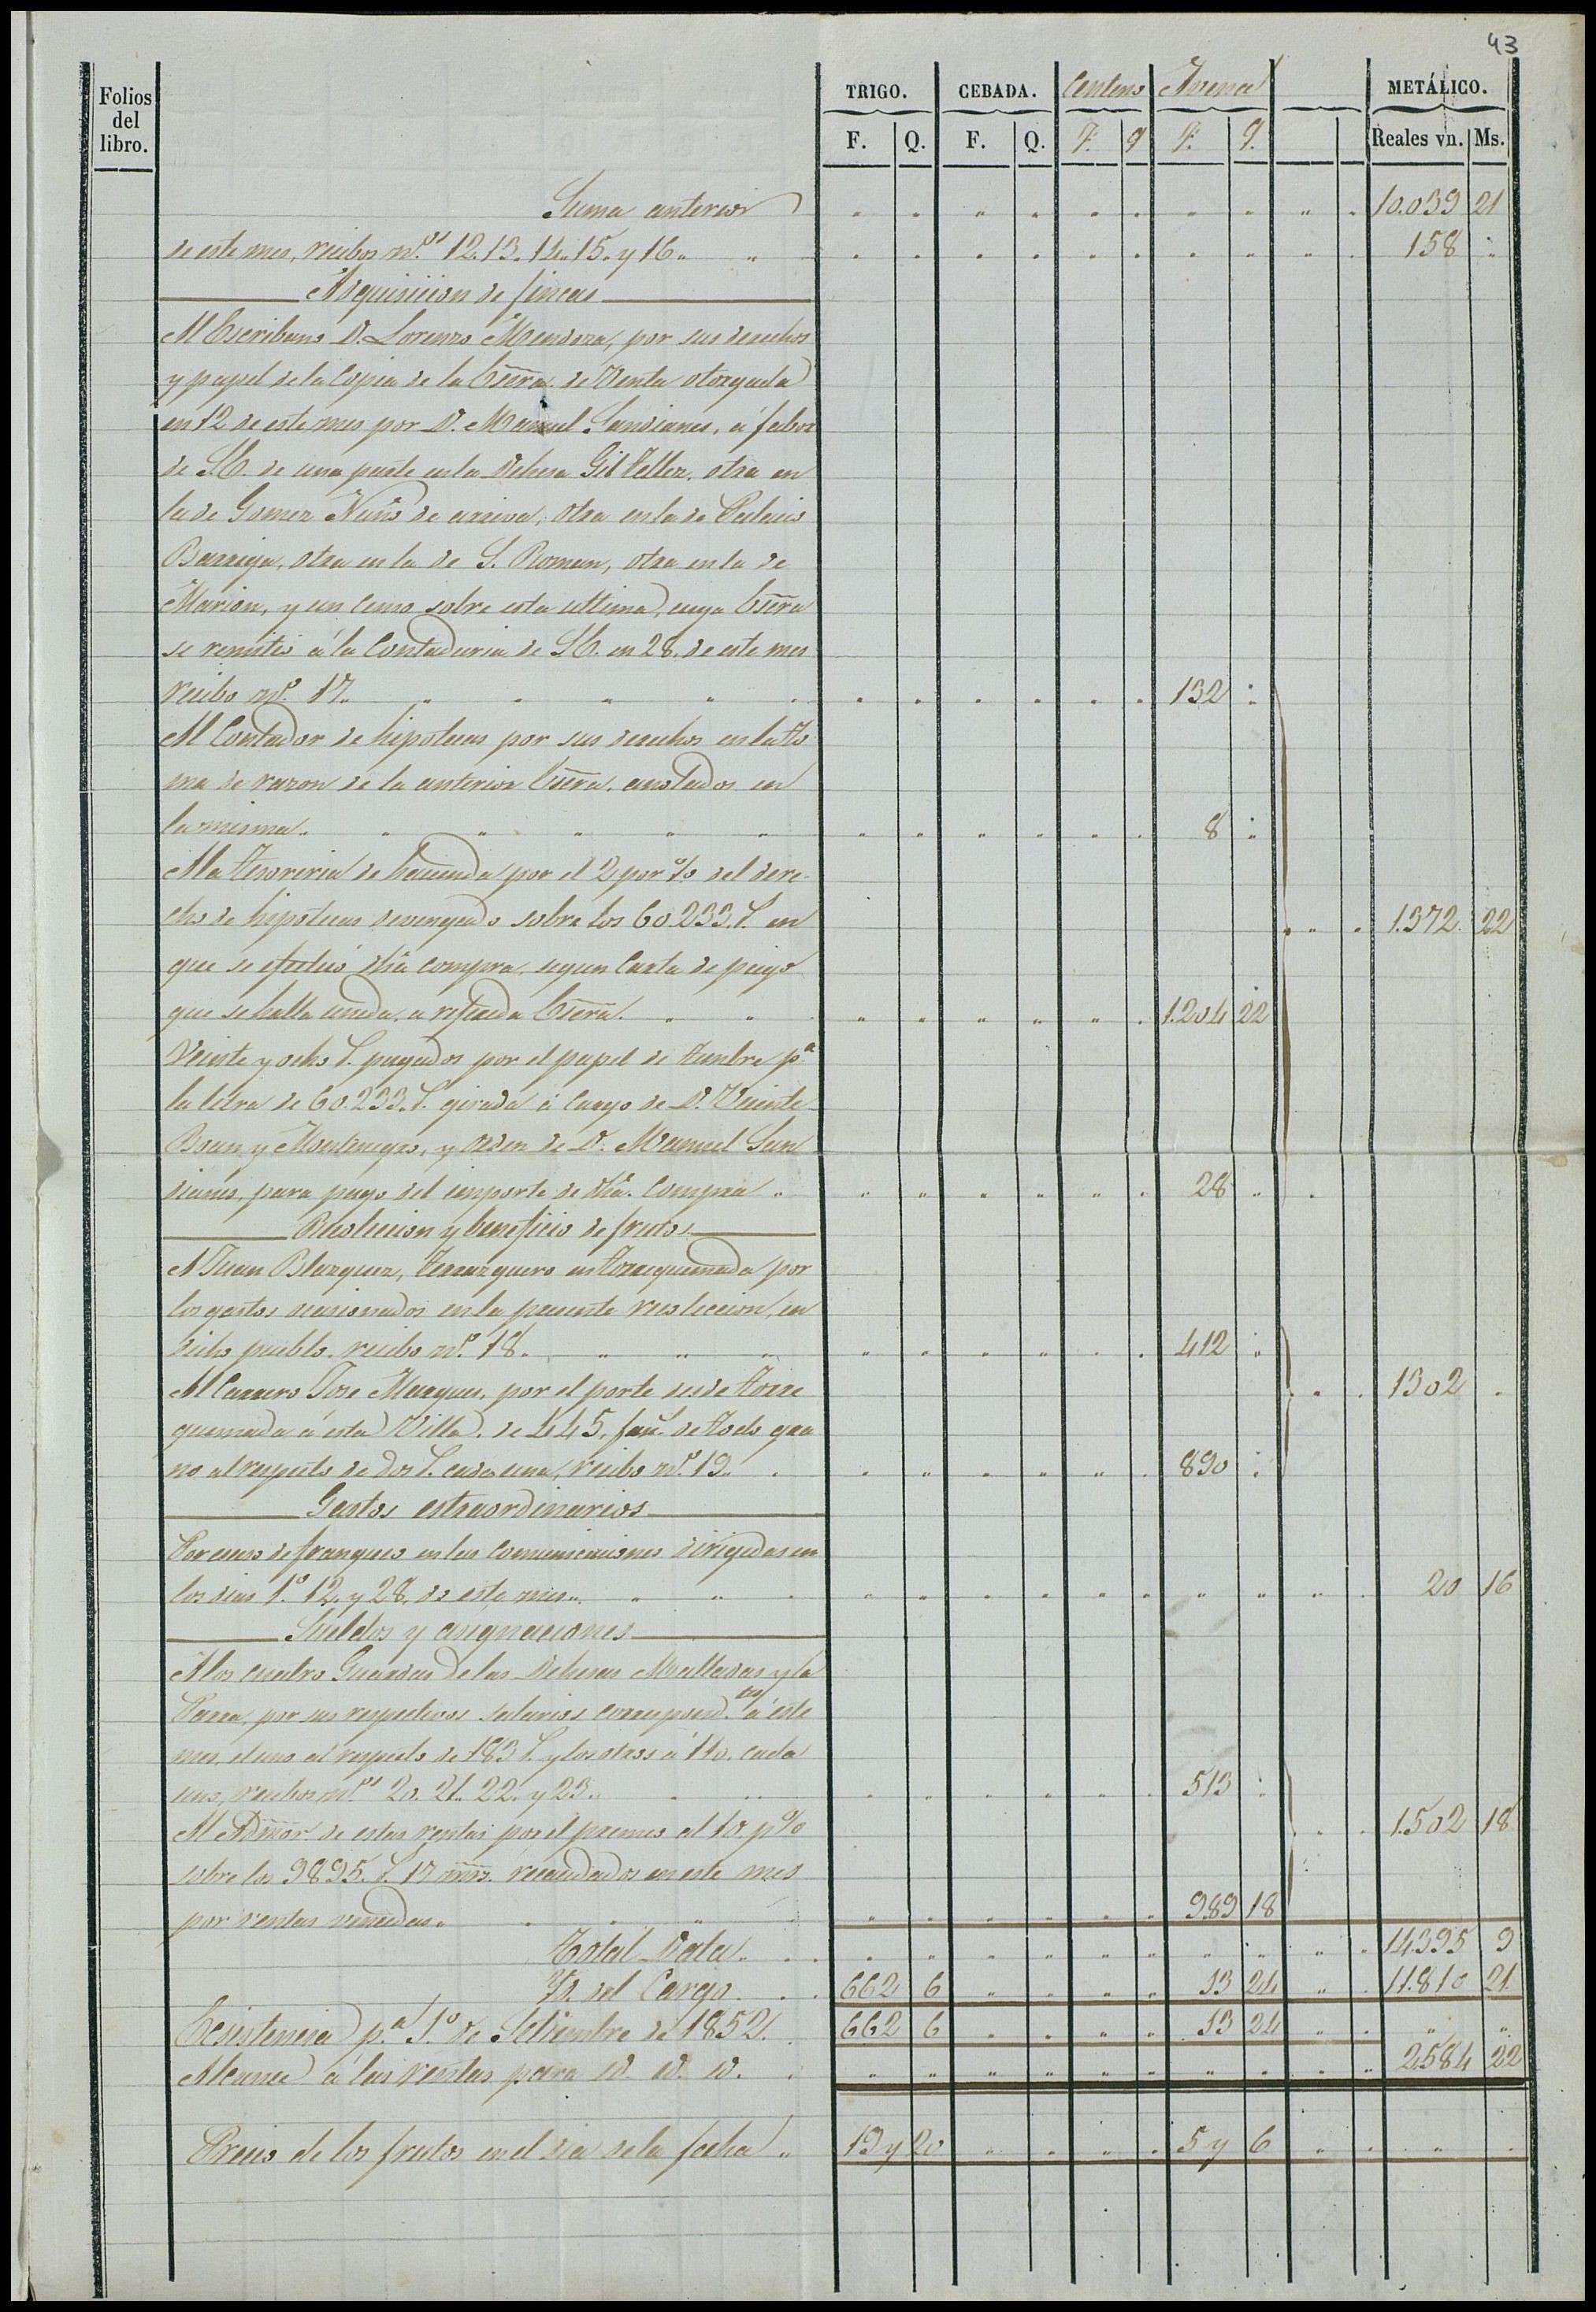 43
Folios del libro.
TRIGO. CEBADA. Centeno Avena METÁLICO.
F. Q. F. Q. F. Q F. Q. Reales vn. Ms.
Suma anterior 10.039 21
de este mes, recibos nos. 12. 13. 14. 15. y 16. 158
Adquisicion de fincas
Al Escribano D. Lorenzo Mendoza, por sus derechos
y papel de la Copia de la Escra. de Venta otorgada
en 12 de este mes por D. Manuel Sandianes, á fabor
de S.E. de una parte en la Dehesa Gil Tellez, otra en
la de Gomez Nuño de arriva, otra en la de Palacio
Barriga, otra en la de S. Roman, otra en la de
Marion, y un Censo sobre esta ultima, cuya Escra
se remitió á la Contaduria de S.E. en 28. de este mes
recibo no. 17. 132
Al Contador de hipotecas por sus derechos en la to
ma de razon de la anterior Escra. anotados en
la misma. 8
A la Tesoreria de hacienda por el 2 por % del dere-
cho de hipotecas devengado sobre los 60.233. r. en
que se efectuó dha compra, segun Carta de pago 1.372. 22
que se halla unida a referida Escra. 1.204 22
Veinte y ocho r. pagados por el papel de timbre pa.
la letra de 60.233. r. girada á Cargo de D. Vicente
y Montenegro, y orden de D. Manuel San
dianes, para pago del importe de dha. Compra 28
Recoleccion y beneficio de frutos
A Juan Blazquez, terrazguero en Torrequemada por
los gastos ocasionados en la presente recoleccion, en
dicho pueblo. recibo no. 18. 412
Al Carrero Jose Marques, por el porte desde Torre 1302
quemada á esta Villa, de 445. fans. de todo gra
no al respecto de dos r. cada una, recibo no. 19. 890
Gastos estraordinarios
Por de franqueo en las Comunicaciones dirigidas en
los dias 1o. 12. y 28. de este mes. 20 16
Sueldos y asignaciones
A los cuatro Guardas de las Dehesas Malladas y la
Parra, por sus respectivos salarios correspond.tes á este
mes, el uno al respecto de 183 r. y los otros á 110. cada
uno, recibos nos. 20. 21. 22. y 23. 513
Al Admor. de estas rentas por el premio al 10. p% 1.502 18
sobre los 9895. r. 17 mrs. recaudados en este mes
por rentas vencidas. 989 18
Total Data. 14.395 9
Yd. del Cargo. 662 6 13 24 11.810 21
Ecsistencia pa. 1o. de Setiembre de 1852. 662 6 13 24
Alcance á las rentas para id. id. id. 2584 22
Precio de los frutos en el dia de la fecha 19 y 20 5 y 6